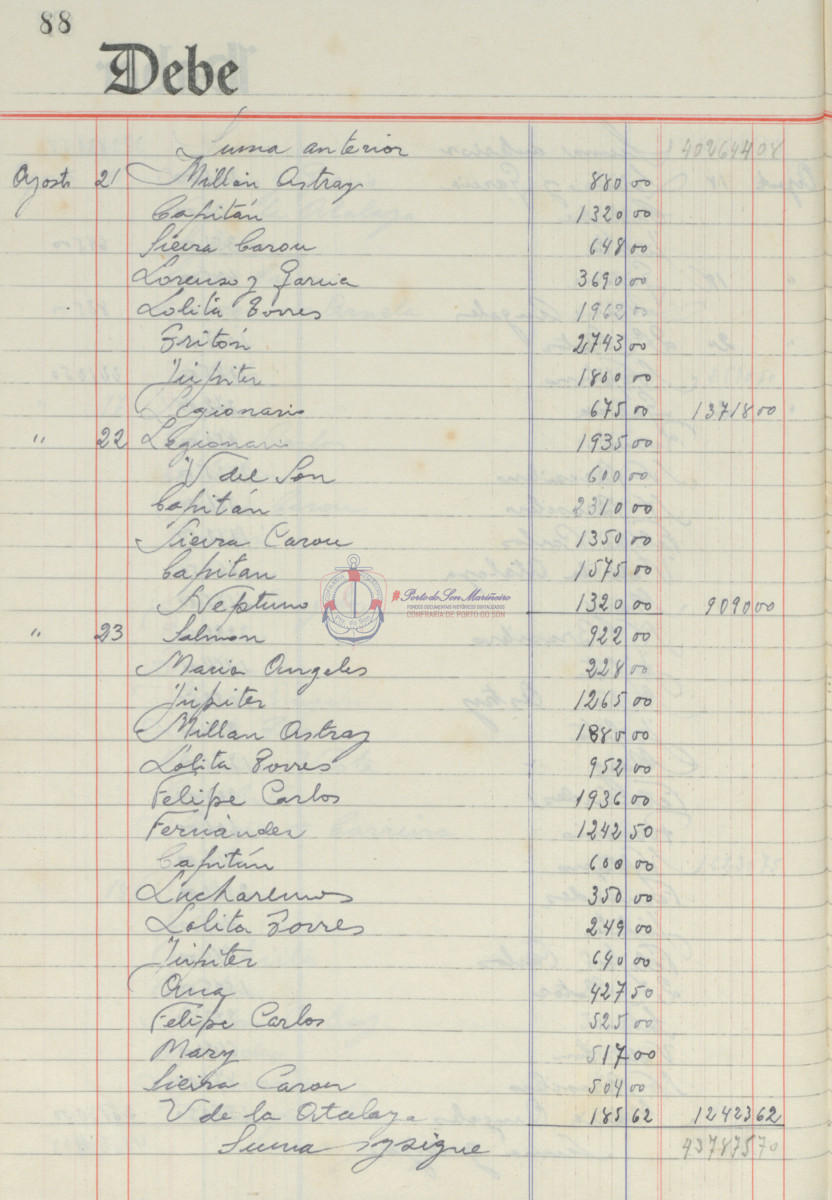 88
Debe
Suma anterior 40264408
Agosto 21 Millán Astray 880 00
Capitán 1320 00
Sieira Carou 648 00
Lorenzo y Garcia 3690 00
Lolita Torres 1962 00
Tritón 2743 00
Júpiter 1800 00
Legionario 675 00 13718 00
" 22 Legionario 1935 00
V del Son 600 00
Capitán 2310 00
Sieira Carou 1350 00
Capitan 1575 00
Neptuno 1320 00 9090 00
" 23 Salmon 922 00
Maria Angeles 228 00
Júpiter 1265 00
Millan Astray 1880 00
Lolita Torres 952 00
Felipe Carlos 1936 00
Fernández 1242 50
Capitán 600 00
Lucharemos 350 00
Lolita Torres 249 00
Júpiter 640 00
Ana 427 50
Felipe Carlos 525 00
Mary 517 00
Sieira Carou 504 00
V de la Atalaya 185 62 12423 62
Suma y sigue 437875 70
COFRARIA
#PortodoSon Mariñeiro
FONDOS DOCUMENTAIS HISTÓRICOS DIXITALIZADOS
CONFRARÍA DE PORTO DO SON